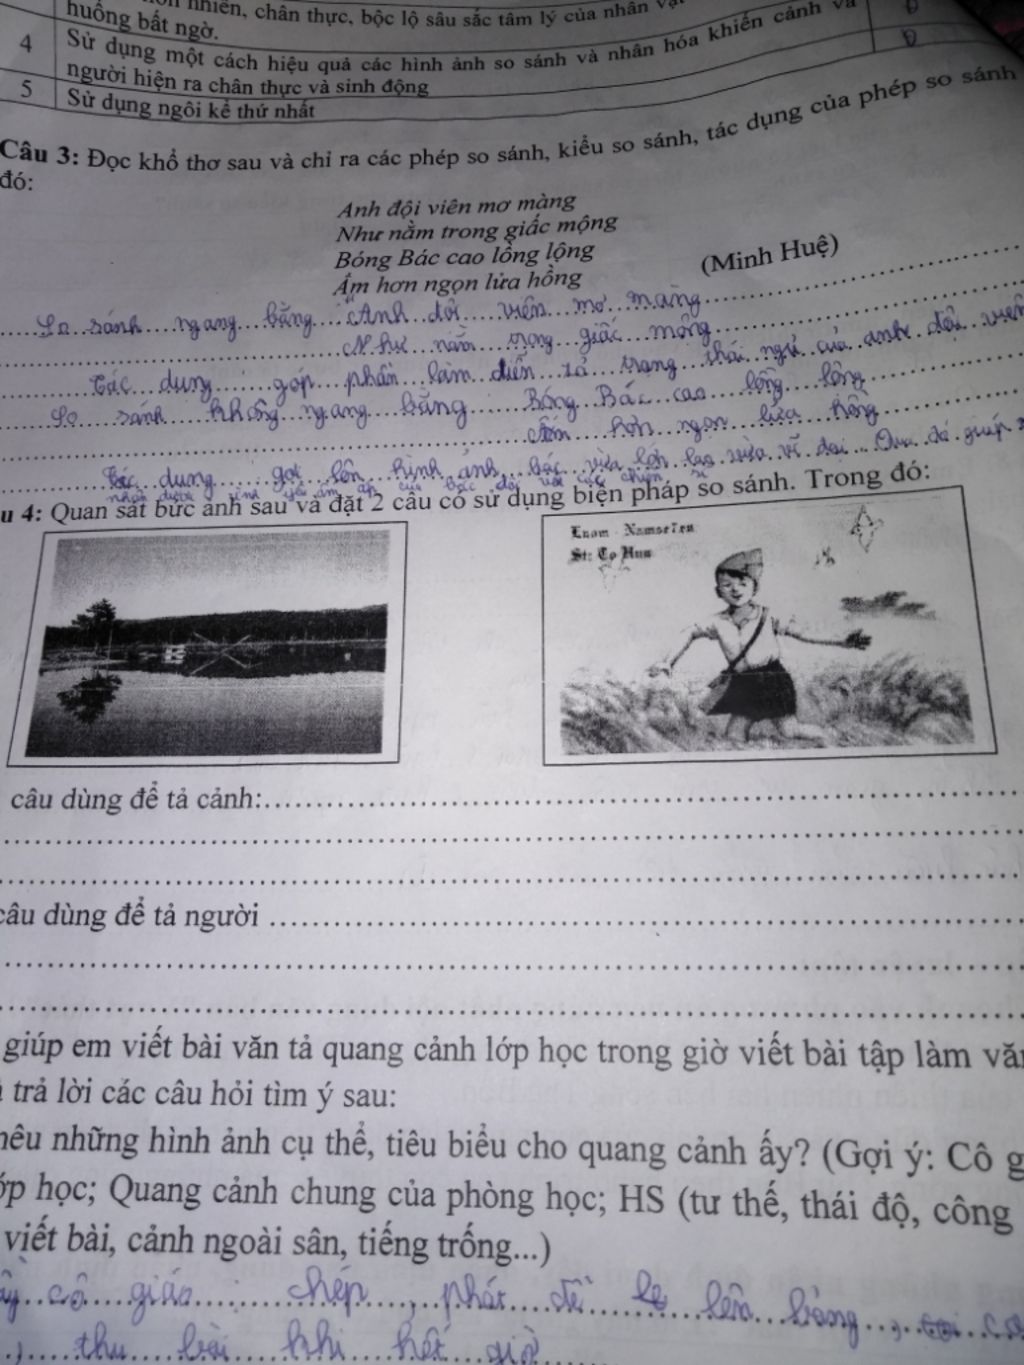 nhiên, chân thực, bộc lộ sâu sắc tâm lý của nhân vật
huống bất ngờ.
4 Sử dụng một cách hiệu quả các hình ảnh so sánh và nhân hóa khiến cảnh và
người hiện ra chân thực và sinh động
5 Sử dụng ngôi kể thứ nhất
Câu 3: Đọc khổ thơ sau và chỉ ra các phép so sánh, kiểu so sánh, tác dụng của phép so sánh
đó:
Anh đội viên mơ màng
Như nằm trong giấc mộng
Bóng Bác cao lồng lộng
Ấm hơn ngọn lửa hồng
(Minh Huệ)
So sánh ngang bằng Anh đội viên mơ màng
Như nằm trong giấc mộng
Tác dụng góp phần làm diễn tả trạng thái ngủ của anh đội viên
So sánh không ngang bằng Bóng Bác cao lồng lộng
Ấm hơn ngọn lửa hồng
Tác dụng gợi lên hình ảnh bác vừa lớn lao vừa vĩ đại Qua đó giúp
nhận được tình yêu ấm áp của Bác đối với các chiến sĩ
u 4: Quan sát bức ảnh sau và đặt 2 câu có sử dụng biện pháp so sánh. Trong đó:
St: Co Hum
câu dùng để tả cảnh:
câu dùng để tả người
giúp em viết bài văn tả quang cảnh lớp học trong giờ viết bài tập làm văn
trả lời các câu hỏi tìm ý sau:
nêu những hình ảnh cụ thể, tiêu biểu cho quang cảnh ấy? (Gợi ý: Cô g
ớp học; Quang cảnh chung của phòng học; HS (tư thế, thái độ, công
viết bài, cảnh ngoài sân, tiếng trống...)
cô giáo chép, phát đề lên bảng,
, thu bài khi hết giờ